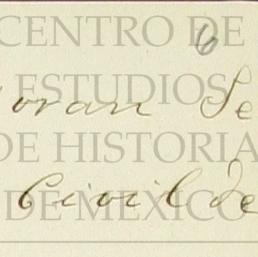 CENTRO DE
6
ESTUDIOS
oran Se
DE HISTORIA
Civil de
DE MÉXICO